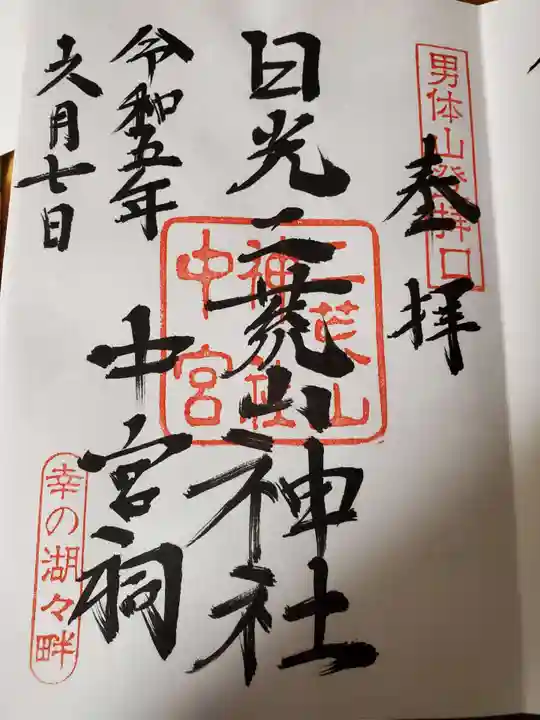 男体山登拝口
奉拝
日光二荒山神社
二荒山
神社
中宮
中宮祠
令和五年
六月七日
幸の湖々畔